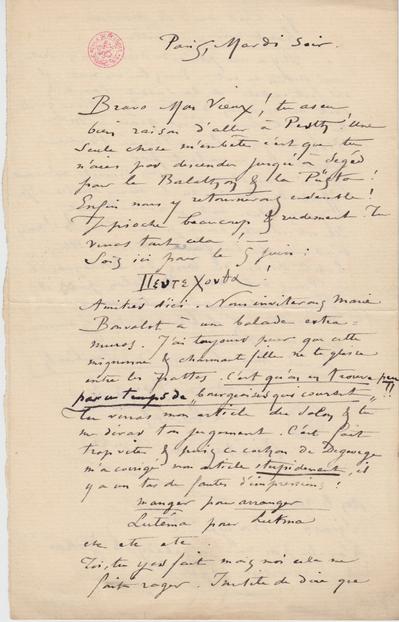 Paris, Mardi Soir.
Bravo Mon Vieux! tu as eu
bien raison d'aller à Pesth! Une
seule chose m'embête c'est que tu
n'aies pas descendu jusqu'à Seged
pour le Balaton & la Puszta!
Enfin nous y retournerons ensemble!
Je pioche beaucoup & rudement. Tu
verras tout cela! —
Sois ici pour le 5 juin:
Πεντε Χοντα!
Amitiés d'ici. Nous inviterons Marie
Bonvalot à une balade extra=
muros. J'ai toujours peur que cette
mignonne & charmante fille ne te glisse
entre les pattes. C'est qu'on en trouve peu
par ce temps de "bourgeoisisme courant"!!
Tu verras mon article du Salon & tu
me diras ton jugement. C'est fait
trop vite & puis ce cochon de
m'a corrigé mon article stupidement, il
y a un tas de fautes d'impression:
manger pour arranger
Lutéma pour Lutma
etc etc etc.
Toi, tu y es fait mais moi cela me
fait rager. Inutile de dire que